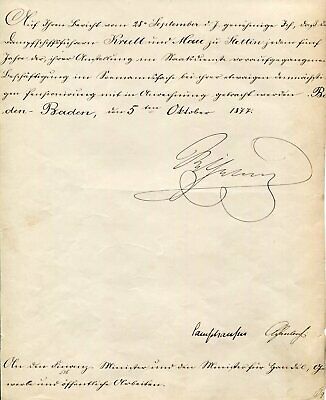 Auf Ihren Bericht vom 25 September d. J. genehmige Ich, daß den
Dampfschiffsführern Kruell und Maue zu Stettin jedem fünf
Jahre der ihrer Anstellung im Staatsdienste voraufgegangenen
Beschäftigung im Seemannsfache bei ihrer etwaigen demnächsti-
gen Pensionirung mit in Anrechnung gebracht werden. Ba-
den-Baden, den 5 ten Oktober 1877.
Wilhelm
Camphausen Achenbach
An den Finanz-Minister und den Minister für Handel, Ge-
werbe und öffentliche Arbeiten.